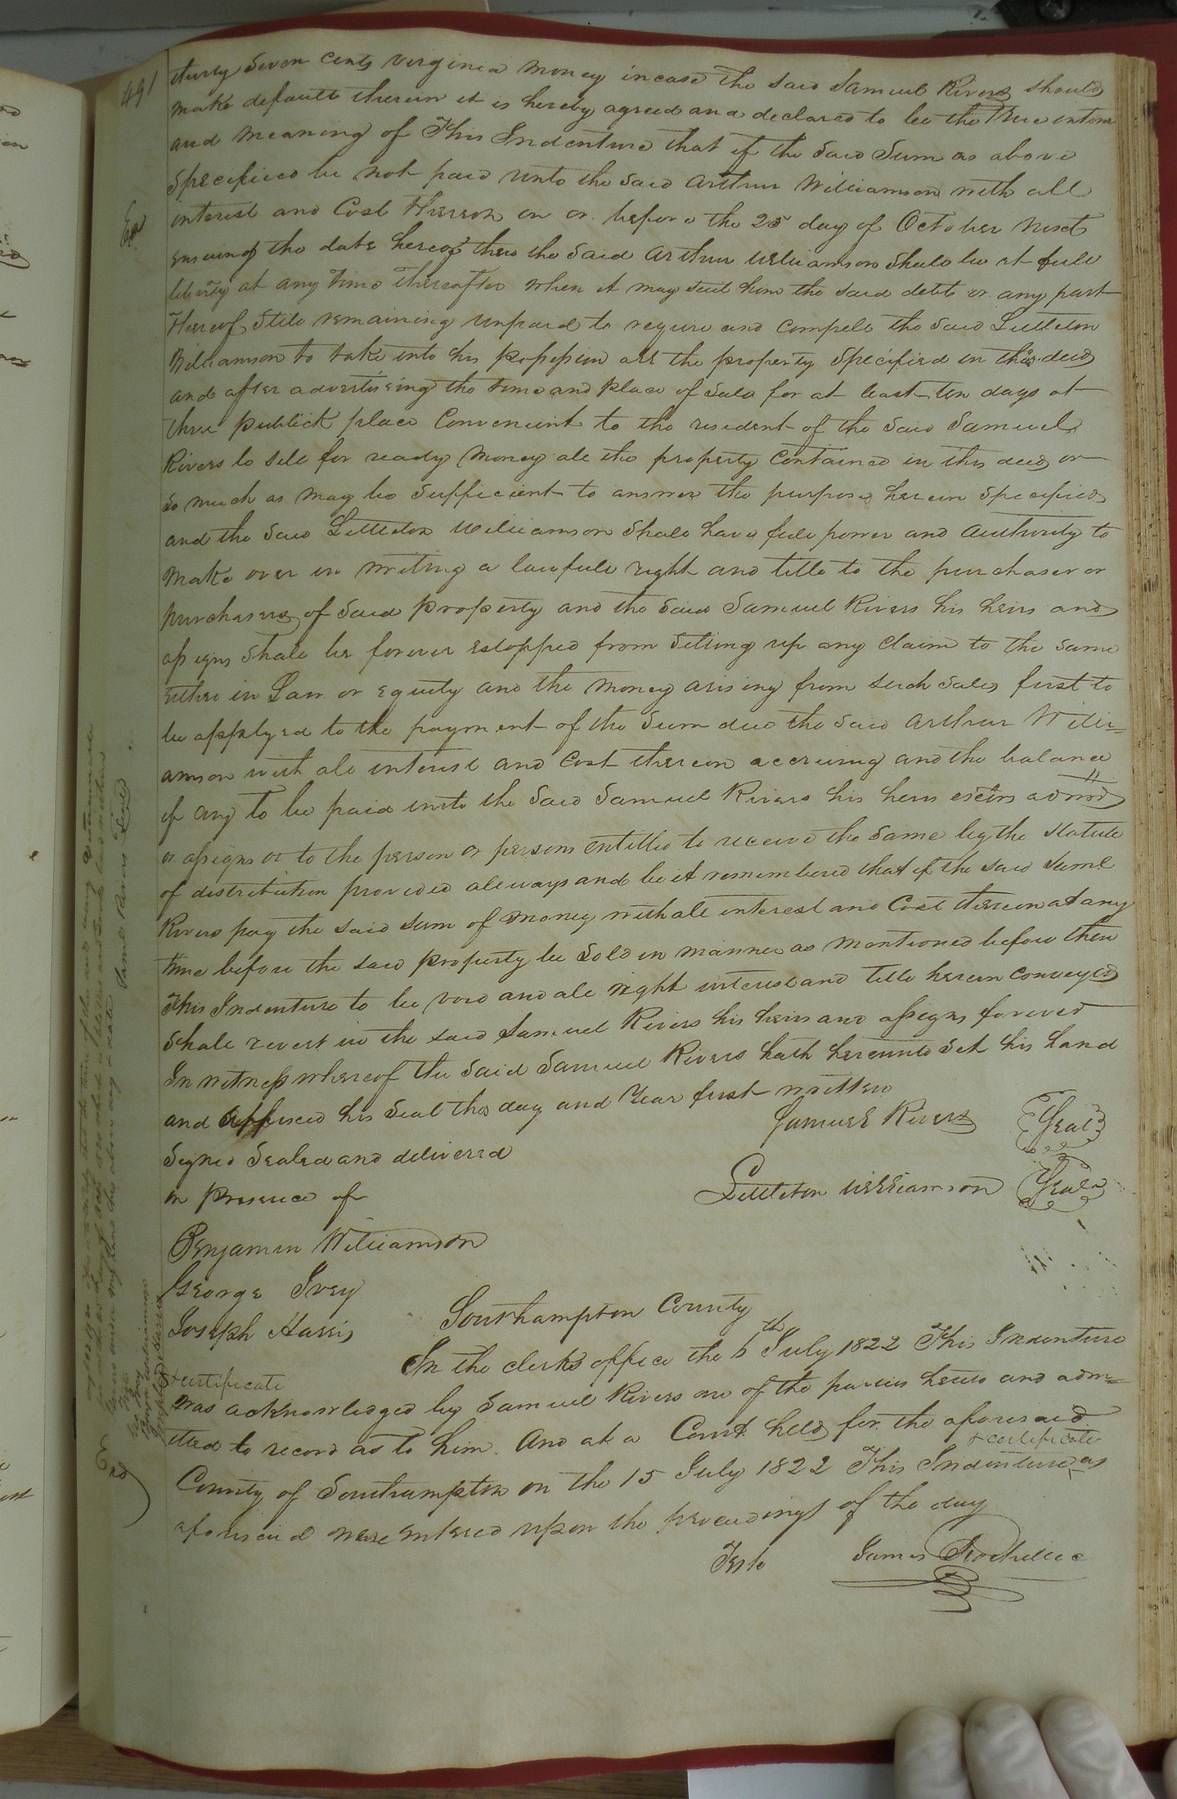 491
thirty Seven Cents virginia money incase the said Samuel Rivers should
make default therein it is hereby agreed and declared to be the true intent
and meaning of This Indenture that if the said Sum as above
Specified be not paid unto the said Arthur Williamson with all
interest and Cost Thereon on or before the 25 day of October next
ensuing the date hereof then the Said Arthur Williamson Shall be at full
liberty at any time Thereafter when it may suit him the said debt or any part
Thereof Still remaining unpaid to require and compell the Said Littleton
Williamson to take into his possession all the property Specified in this deed
and after advertising the time and Place of Sale for at least ten days at
three publick place Convenient to the resident of the said Samuel
Rivers to sell for ready money all the property Contained in this deed or
so much as may be Sufficient to answer the purpose herein Specified
and the said Littleton Williamson Shall have full power and Authority to
make over in writing a lawfull right and title to the purchaser or
purchasers of said property and the Said Samuel Rivers his heirs and
assigns shall be forever estopped from Setting up any Claim to the Same
either in Law or equity and the money arising from such Sales first to
be applyed to the payment of the Sum due the said Arthur Willi=
amson with all interest and Cost thereon accruing and the balance
if any to be paid unto the Said Samuel Rivers his heirs exctrs admrs
or assigns or to the person or persons entitled to receive the Same by the Statute
of distribution provided allways and be it remembered that if the said Saml
Rivers pay the said Sum of money with all interest and Cost thereon at any
time before the said property be Sold in manner as mentioned before then
This Indenture to be void and all right interest and title herein Conveyed
Shall revert in the said Samuel Rivers his heirs and assigns forever
In witness whereof the Said Samuel Rivers hath hereunto Set his hand
and affixed his Seal the day and Year first written
Samuel Rivers Seal
Signed Sealed and delivered
in presence of
Littleton Williamson Seal
Benjamin Williamson
George Ivey
Joseph Harris
Southampton County
In the clerks office the 6th July 1822 This Indenture
+ certificate
was acknowledged by Samuel Rivers one of the parties hereto and adm=
itted to record as to him. And at a Court held for the aforesaid
+ certificate
County of Southampton on the 15 July 1822 This Indenture as
aforesaid were entered upon the proceedings of the day
Teste James Rochelle
Exd